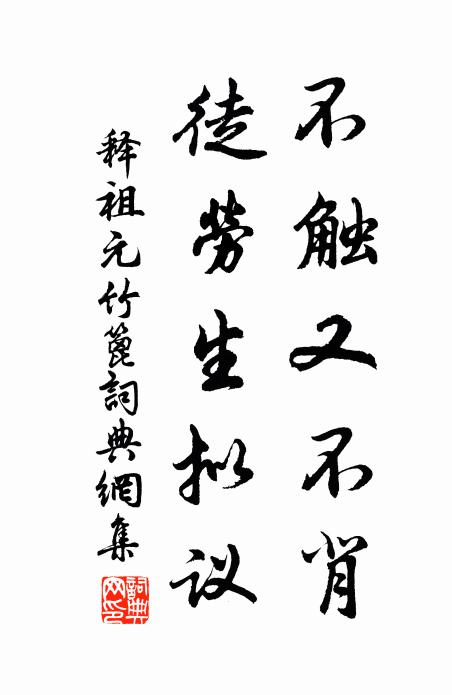 不触又不背
徒劳生拟议
释祖元竹篦詞典網集
詞典网印